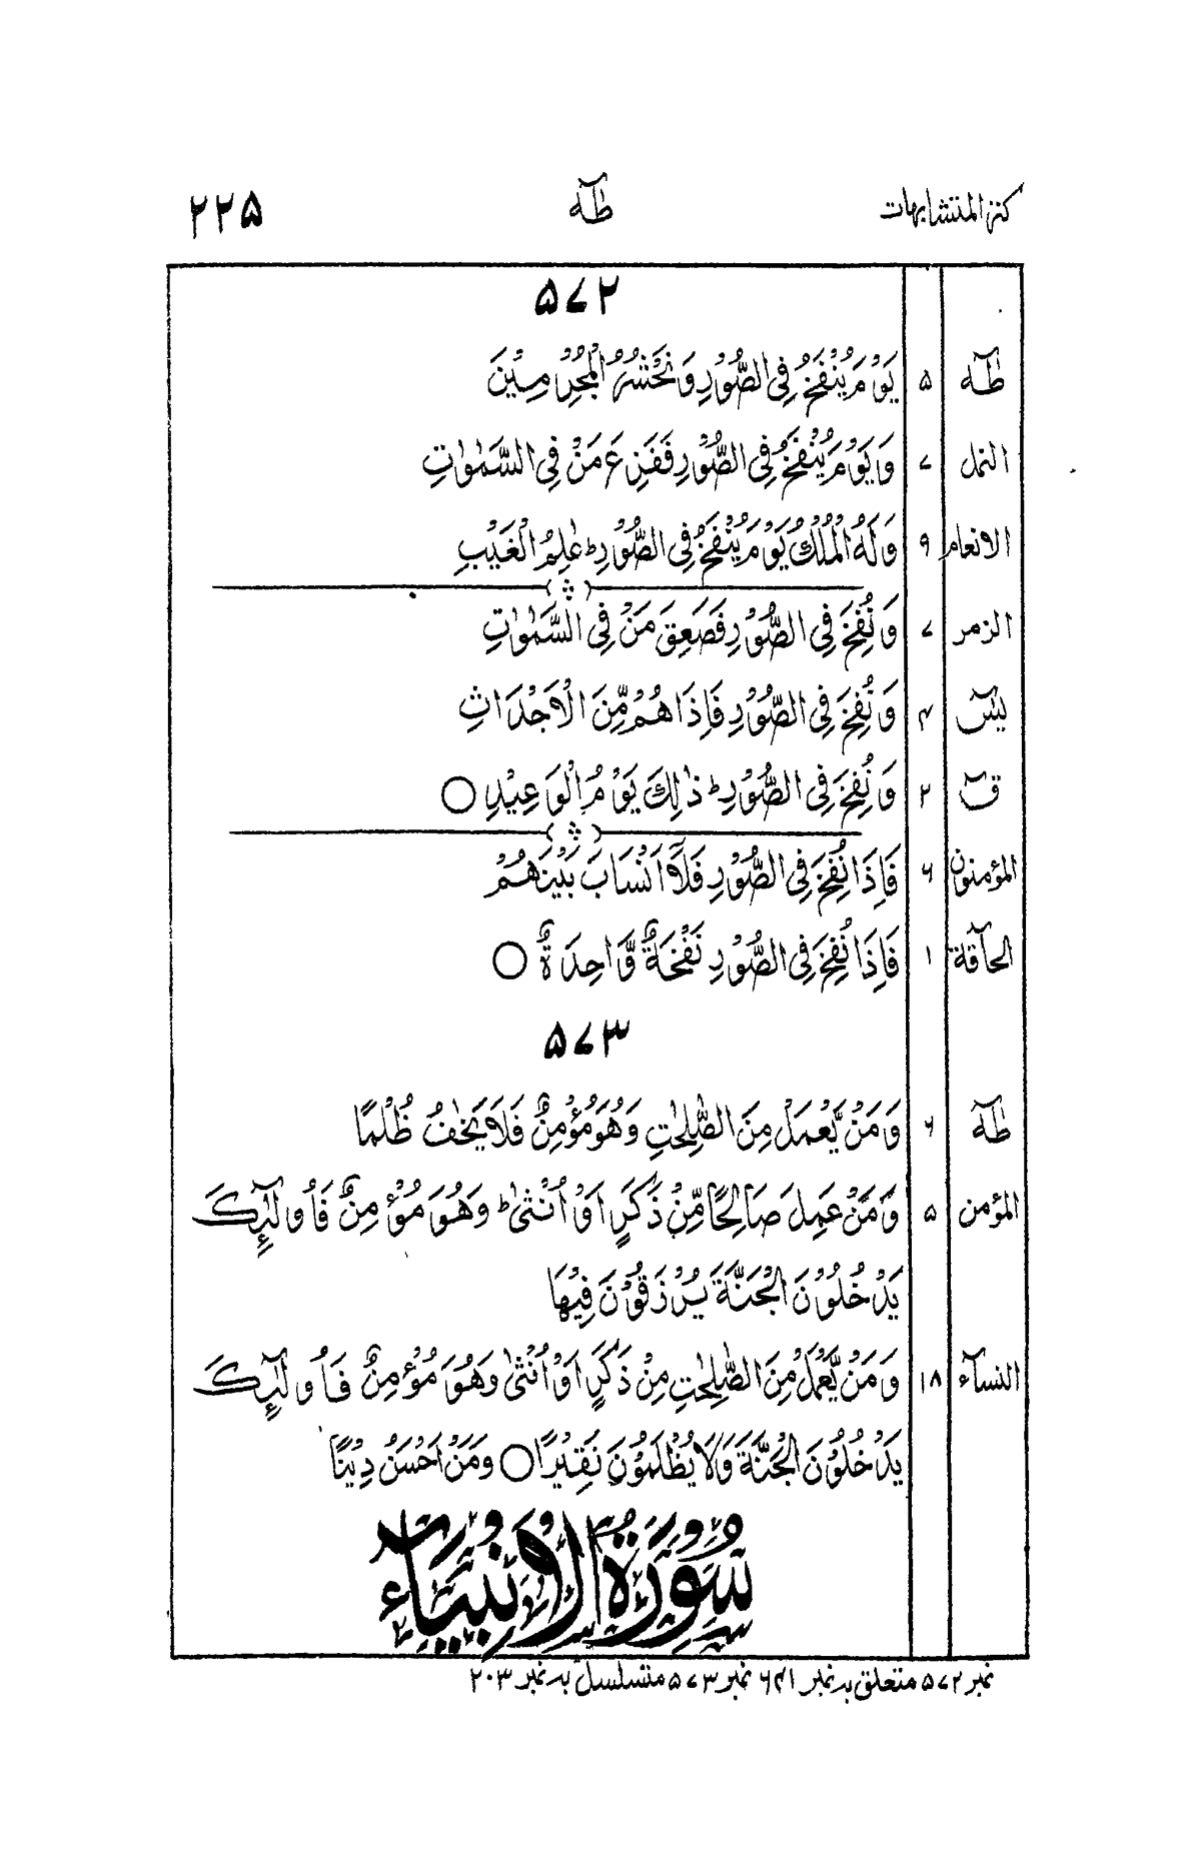 کنز المتشابہات طٰهٰ ۲۲۵
۵۷۲
طٰهٰ ۵ يَوْمَ يُنْفَخُ فِى الصُّوْرِ وَنَحْشُرُ الْمُجْرِمِيْنَ
النمل ۷ وَيَوْمَ يُنْفَخُ فِى الصُّوْرِ فَفَزِعَ مَنْ فِى السَّمٰوٰتِ
الانعام ۹ وَلَهُ الْمُلْكُ يَوْمَ يُنْفَخُ فِى الصُّوْرِ ؕ عٰلِمُ الْغَيْبِ
الزمر ۷ وَنُفِخَ فِى الصُّوْرِ فَصَعِقَ مَنْ فِى السَّمٰوٰتِ
يٰسٓ ۴ وَنُفِخَ فِى الصُّوْرِ فَاِذَا هُمْ مِّنَ الْاَجْدَاثِ
قٓ ۲ وَنُفِخَ فِى الصُّوْرِ ؕ ذٰلِكَ يَوْمُ الْوَعِيْدِ ○
المؤمنون ۶ فَاِذَا نُفِخَ فِى الصُّوْرِ فَلَاۤ اَنْسَابَ بَيْنَهُمْ
الحآقة ۱ فَاِذَا نُفِخَ فِى الصُّوْرِ نَفْخَةٌ وَّاحِدَةٌ ○
۵۷۳
طٰهٰ ۶ وَمَنْ يَّعْمَلْ مِنَ الصّٰلِحٰتِ وَهُوَ مُؤْمِنٌ فَلَا يَخٰفُ ظُلْمًا
المؤمن ۵ وَمَنْ عَمِلَ صَالِحًا مِّنْ ذَكَرٍ اَوْ اُنْثٰى ؕ وَهُوَ مُؤْمِنٌ فَاُولٰٓئِكَ
يَدْخُلُوْنَ الْجَنَّةَ يُرْزَقُوْنَ فِيْهَا
النسآء ۱۸ وَمَنْ يَّعْمَلْ مِنَ الصّٰلِحٰتِ مِنْ ذَكَرٍ اَوْ اُنْثٰى وَهُوَ مُؤْمِنٌ فَاُولٰٓئِكَ
يَدْخُلُوْنَ الْجَنَّةَ وَلَا يُظْلَمُوْنَ نَقِيْرًا ○ وَمَنْ اَحْسَنُ دِيْنًا
سُوْرَةُ الْاَنْبِيَآءِ
نمبر ۵۷۲ متعلق بہ نمبر ۶۴۱ نمبر ۵۷۳ متسلسل بہ نمبر ۲۰۳